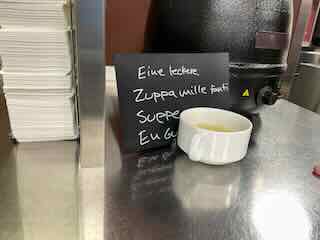 Eine leckere
Zuppa mille fanti
Suppe